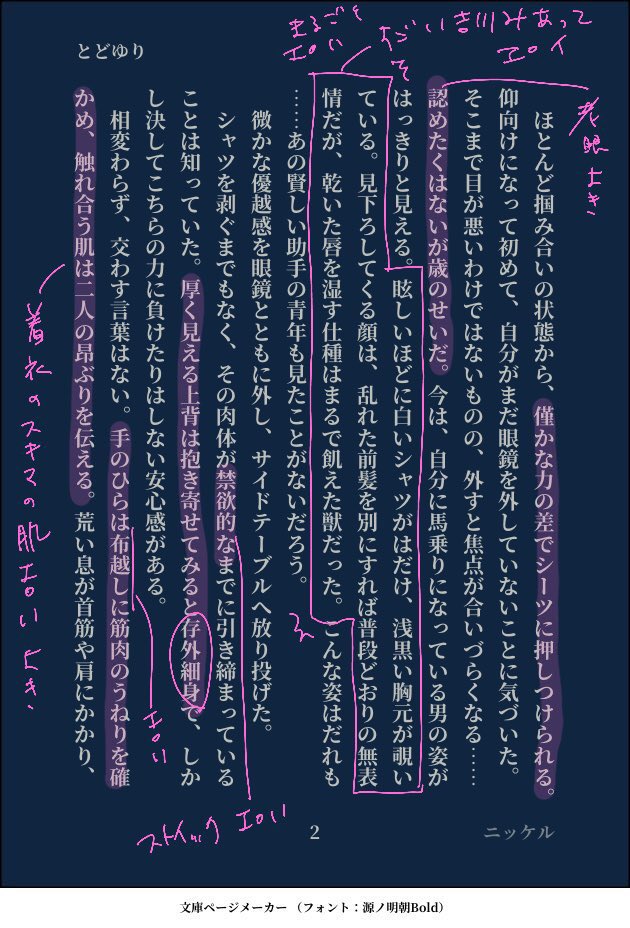 とどゆり
ほとんど掴み合いの状態から、僅かな力の差でシーツに押しつけられる。
仰向けになって初めて、自分がまだ眼鏡を外していないことに気づいた。
そこまで目が悪いわけではないものの、外すと焦点が合いづらくなる……
認めたくはないが歳のせいだ。今は、自分に馬乗りになっている男の姿が
はっきりと見える。眩しいほどに白いシャツがはだけ、浅黒い胸元が覗い
ている。見下ろしてくる顔は、乱れた前髪を別にすれば普段どおりの無表
情だが、乾いた唇を湿す仕種はまるで飢えた獣だった。こんな姿はだれも
……あの賢しい助手の青年も見たことがないだろう。
微かな優越感を眼鏡とともに外し、サイドテーブルへ放り投げた。
シャツを剥ぐまでもなく、その肉体が禁欲的なまでに引き締まっている
ことは知っていた。厚く見える上背は抱き寄せてみると存外細身で、しか
し決してこちらの力に負けたりはしない安心感がある。
相変わらず、交わす言葉はない。手のひらは布越しに筋肉のうねりを確
かめ、触れ合う肌は二人の昂ぶりを伝える。荒い息が首筋や肩にかかり、
老眼よき
まるごと
エロい
エロイ
ストイック エロい
エロい
着衣のスキマの肌エロいよき
2
ニッケル
文庫ページメーカー（フォント：源ノ明朝Bold）